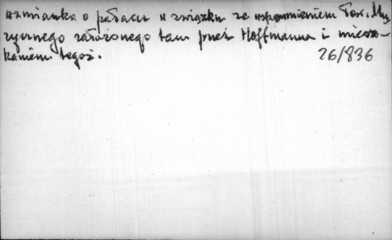 wzmianka o pałacu w związku ze wspomnieniem Tow. Mu
zycznego założonego tam przez Hoffmanna i miesz-
kaniem tegoż.
26/836